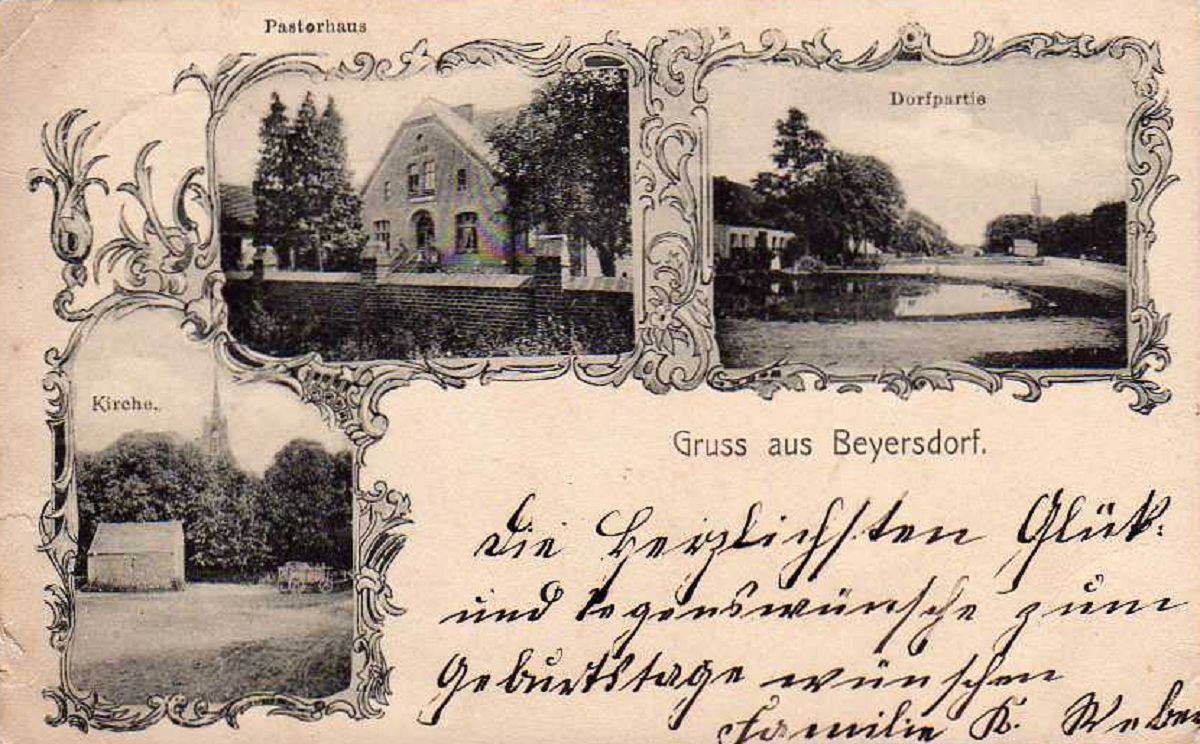 Pastorhaus
Dorfpartie
Kirche.
Gruss aus Beyersdorf.
Die herzlichsten Glück-
und Segenswünsche zum
Geburtstage wünschen
Familie K. Weber